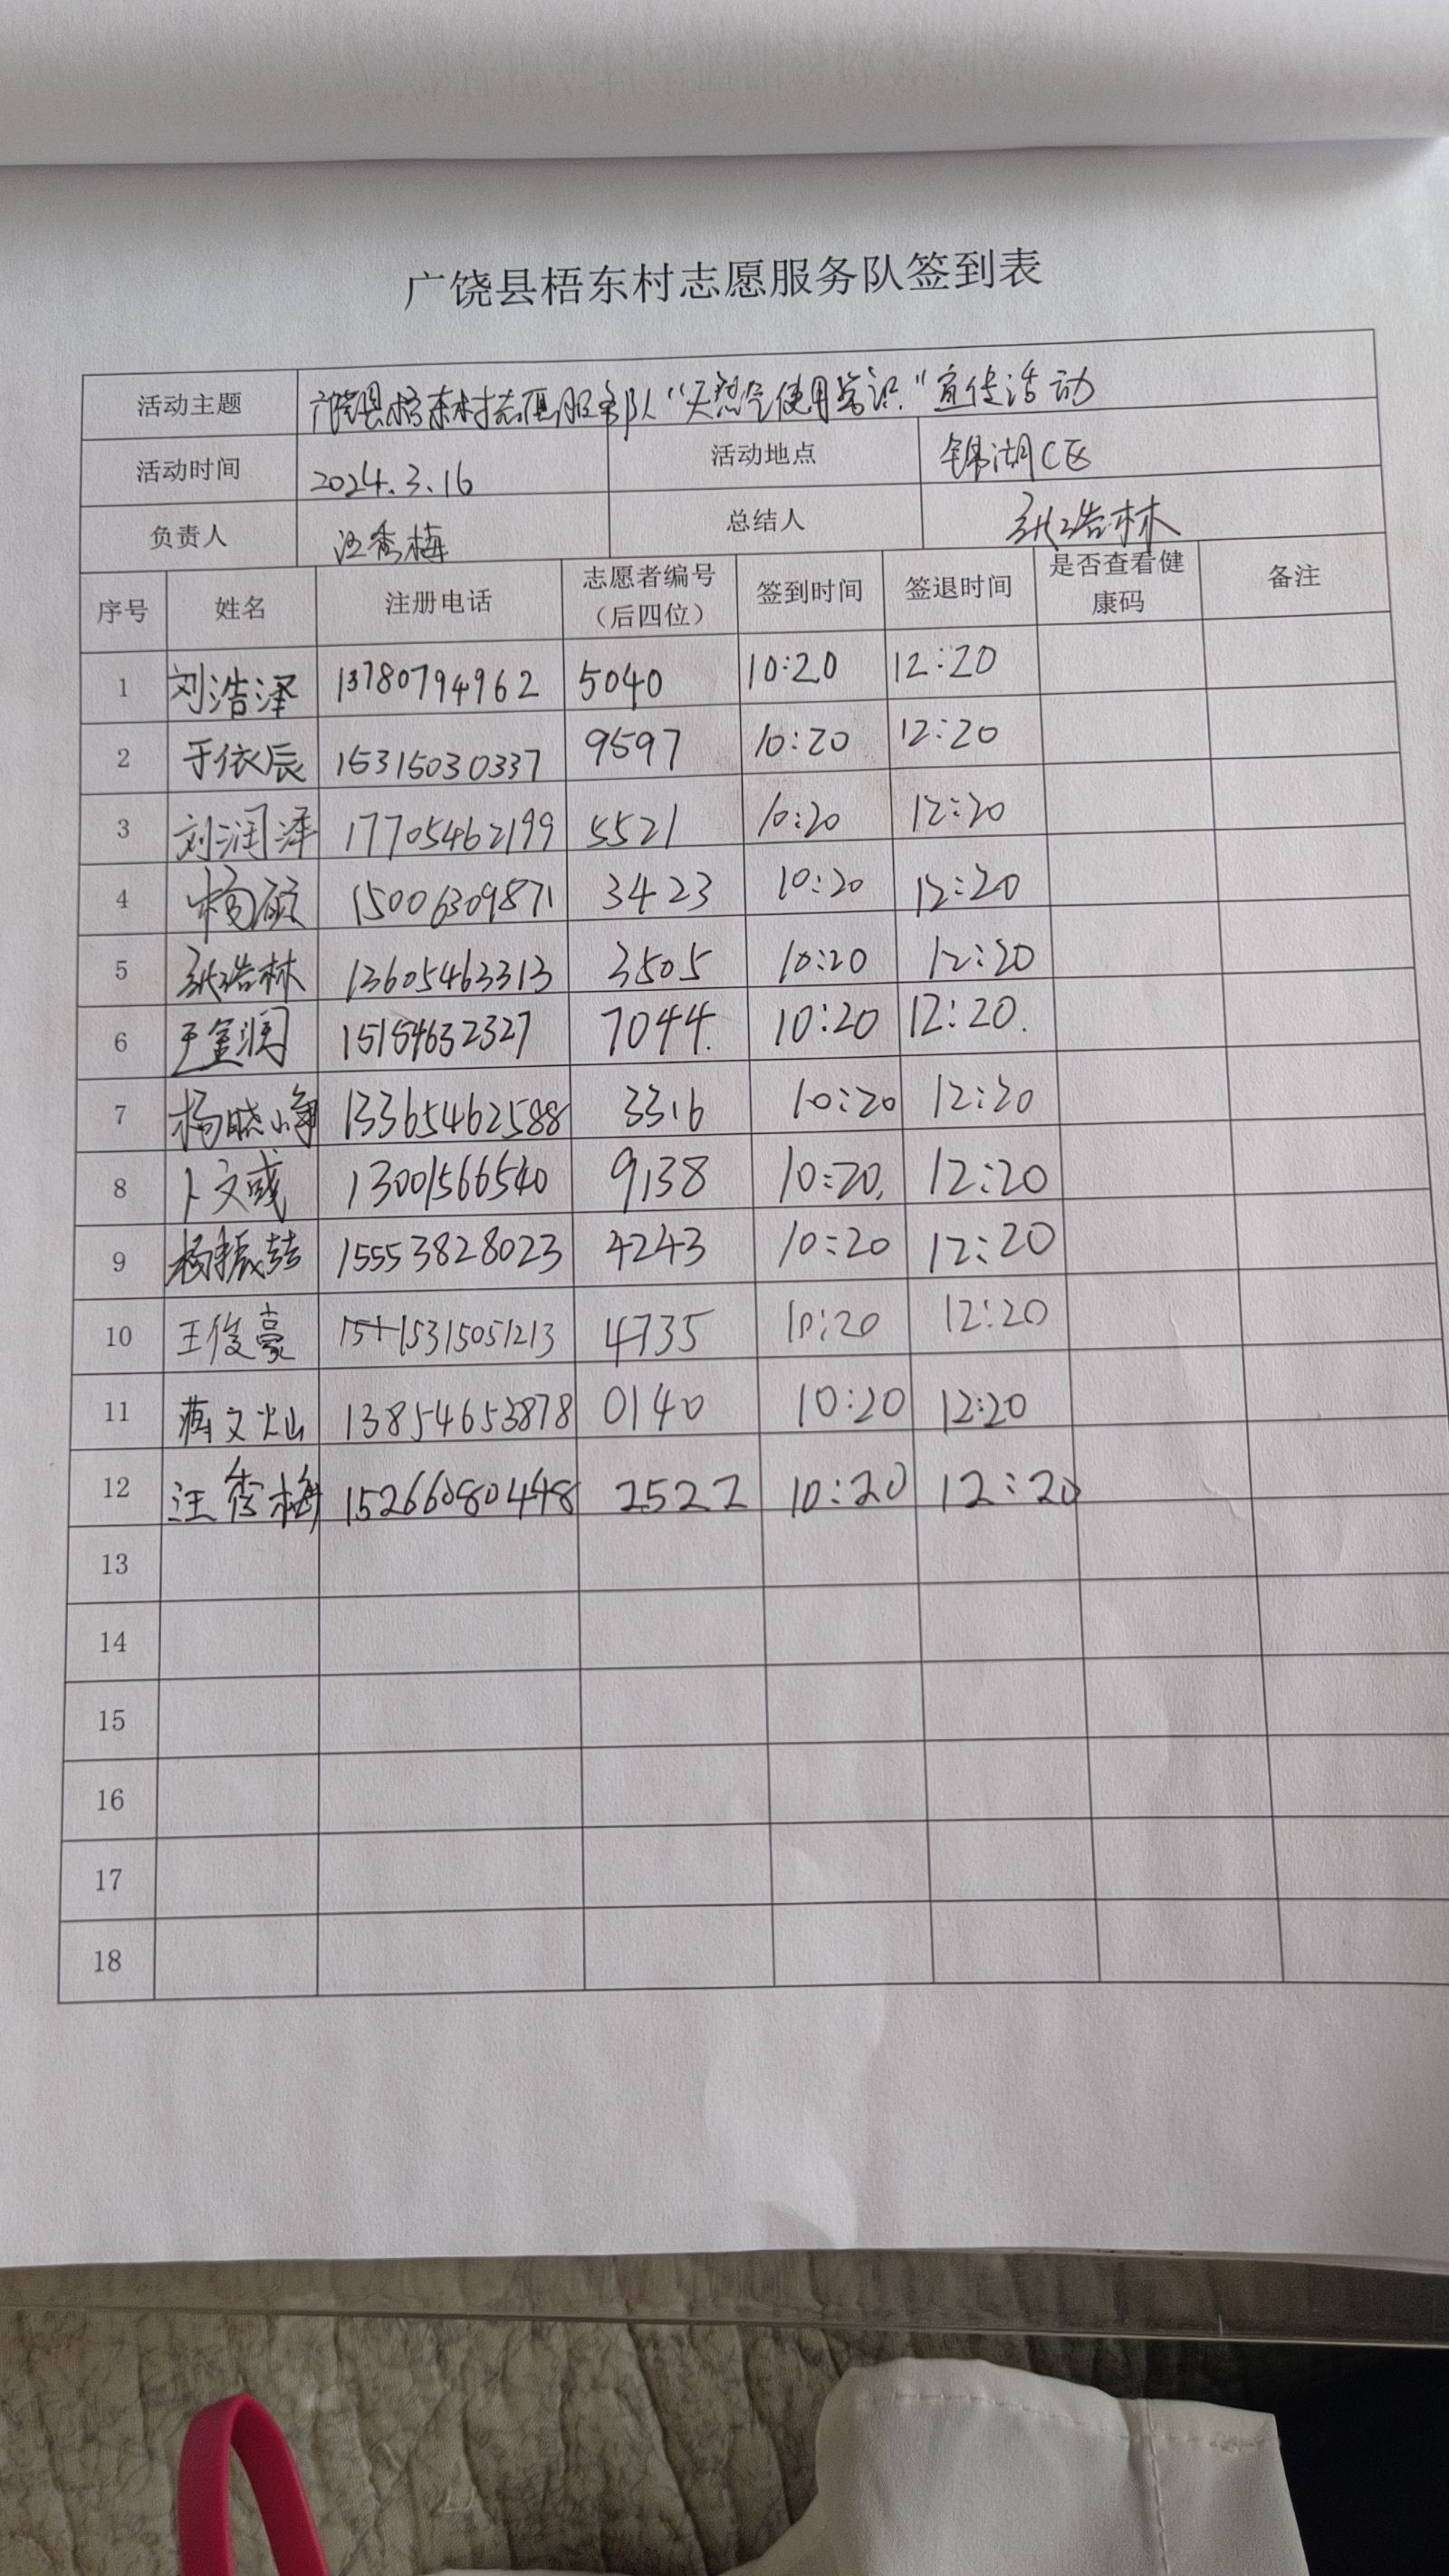 广饶县梧东村志愿服务队签到表
活动主题 广饶县梧东村志愿服务队“天然气使用常识”宣传活动
活动时间 2024.3.16 活动地点 锦湖C区
负责人 汪秀梅 总结人 张浩林
序号 姓名 注册电话 志愿者编号（后四位） 签到时间 签退时间 是否查看健康码 备注
1 刘浩泽 13780794962 5040 10:20 12:20
2 于依辰 15315030337 9597 10:20 12:20
3 刘润泽 17705462199 5521 10:20 12:20
4 杨硕 15006309871 3423 10:20 12:20
5 张浩林 13605463313 3505 10:20 12:20
6 金润 15154632327 7044. 10:20 12:20.
7 杨晓峥 13365462588 3316 10:20 12:20
8 卜文彧 13001566540 9138 10:20. 12:20
9 杨振喆 15553828023 4243 10:20 12:20
10 王俊豪 15315051213 4735 10:20 12:20
11 蒋文灿 13854653878 0140 10:20 12:20
12 汪秀梅 15266080448 2522 10:20 12:20
13
14
15
16
17
18